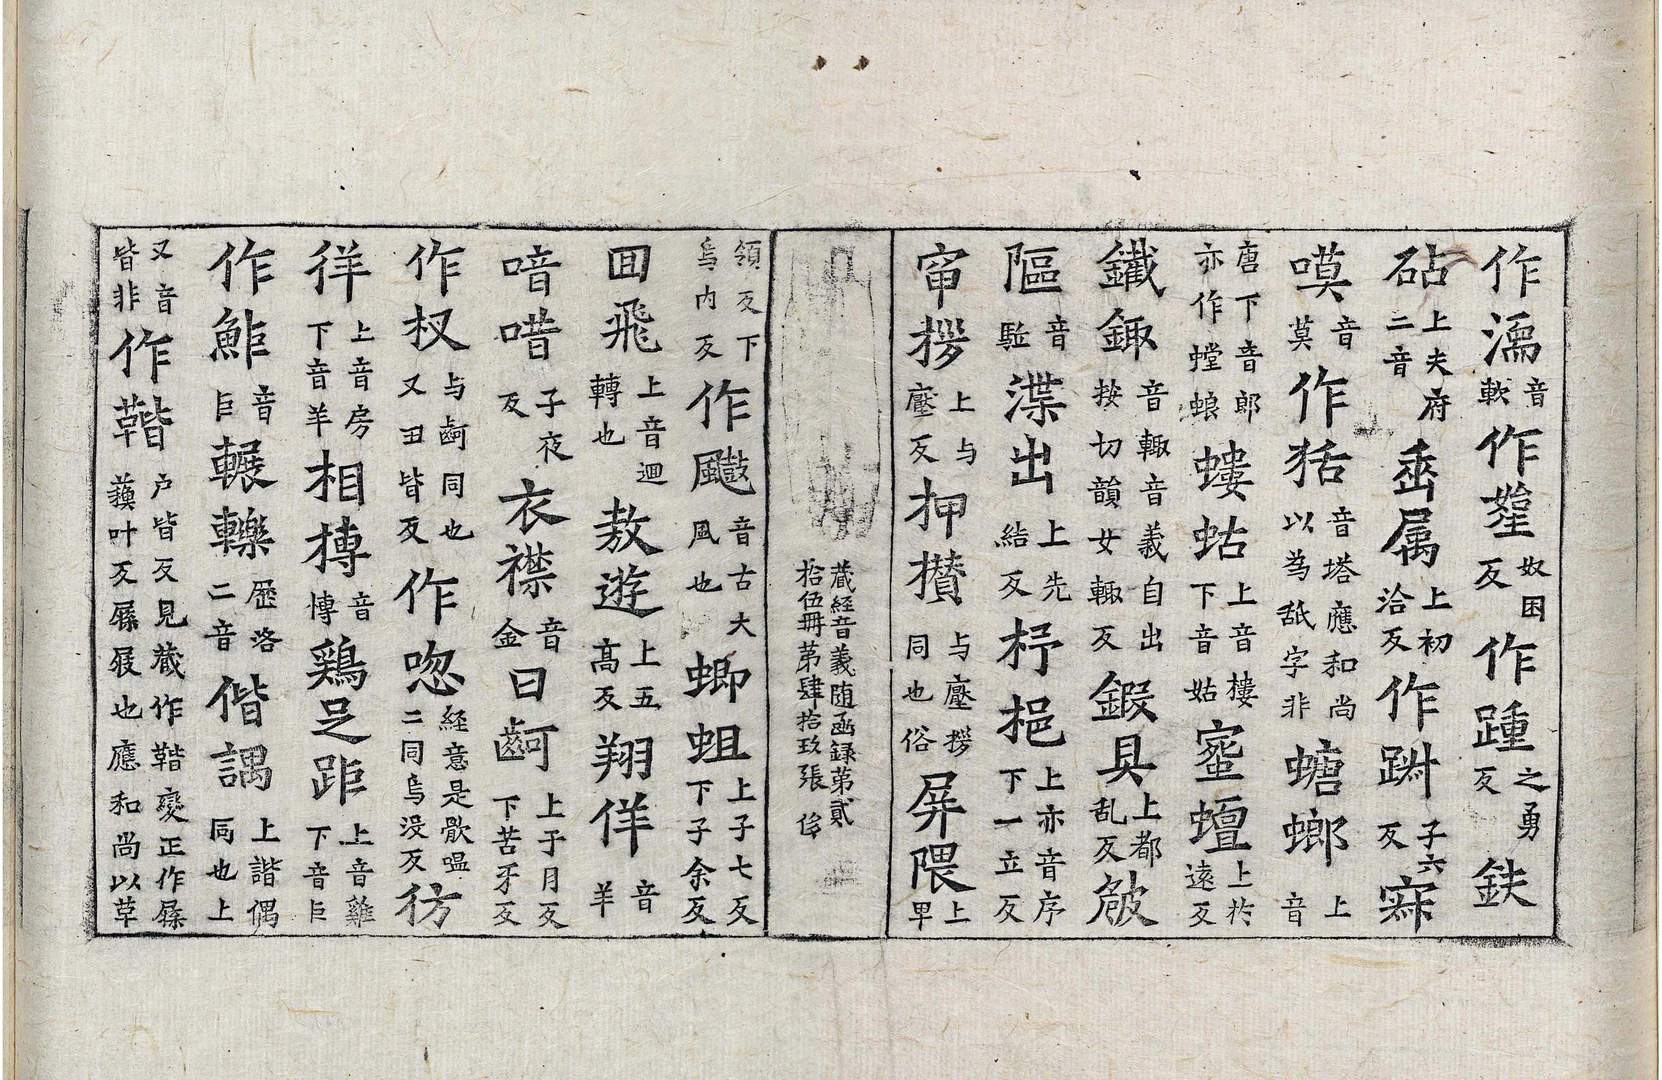 作濡音軟作𮑮奴困反作踵之勇反鈇
砧上夫府二音臿属上初洽反作踋子六反𡪢
嗼音莫作狧音塔應和尚以為舐字非螗螂上音
唐下音郎亦作螳蜋螻蛄上音樓下音姑蜜䗕上於遠反
鐵鋷音輙音義自出按切韻女輙反鍛具上都乱反皷
𨻶音駈渫出上先結反杼挹上亦音序下一立反
窜拶上与壓反押攢与壓拶同也俗屏隈上畀
藏經音義随函録第貳拾伍冊第肆拾玖張 俢
領反下烏内反作䬍音古大風也蝍蛆上子七反下子余反
囬飛上音迴轉也敖遊上五髙反翔佯音羊
喑唶子夜反衣襟音金曰齣上于月反下苦牙反
作杈与齣同也又丑皆反作唿經意是歇嗢二同烏没反彷
徉上音房下音羊相摶音慱鶏足距上音雞下音巨
作䱟音巨輾轢歷洛二音偕調上諧偶同也上
又音皆非作鞜户皆反見藏作鞵變正作屧蘓叶反屧屐也應和尚以草